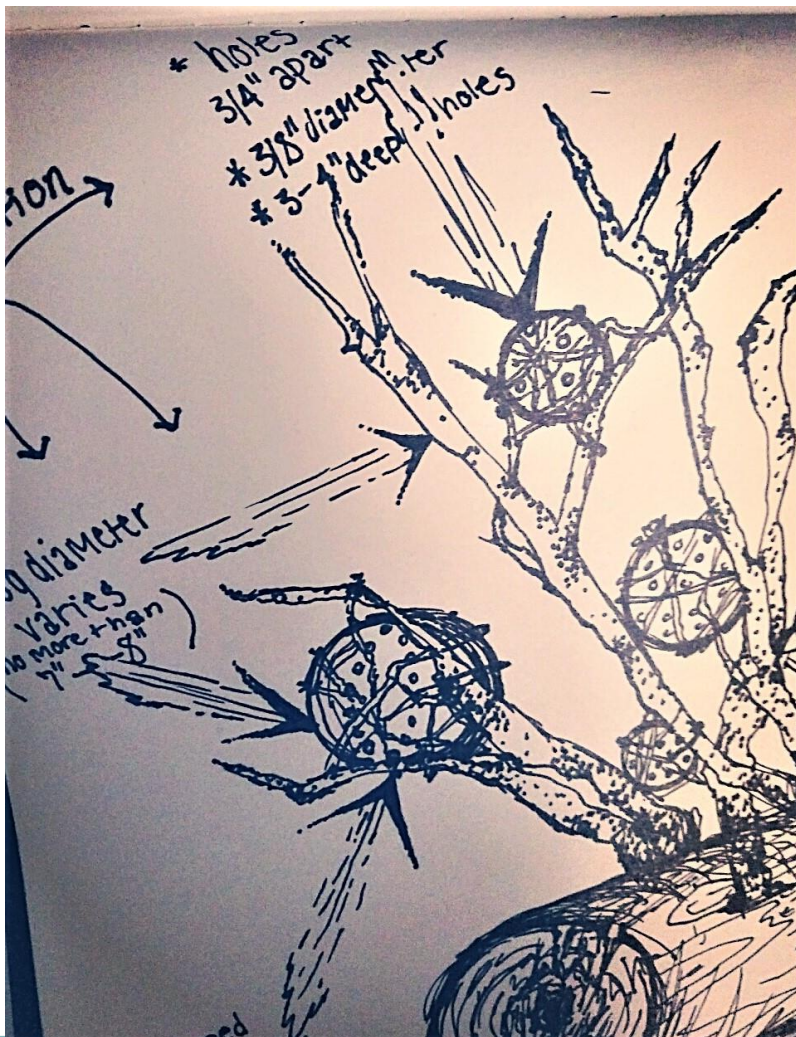 * holes
3/4" apart
* 3/8" diameter
* 3-4" deep holes
diameter
varies
(no more than
7" 8")